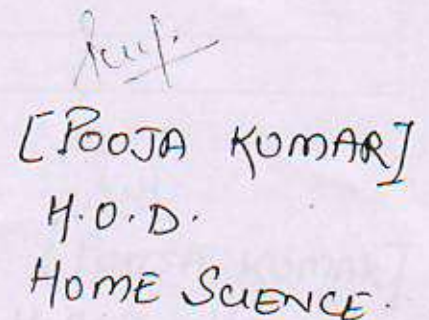 [POOJA KUMAR]
H.O.D.
HOME SCIENCE.